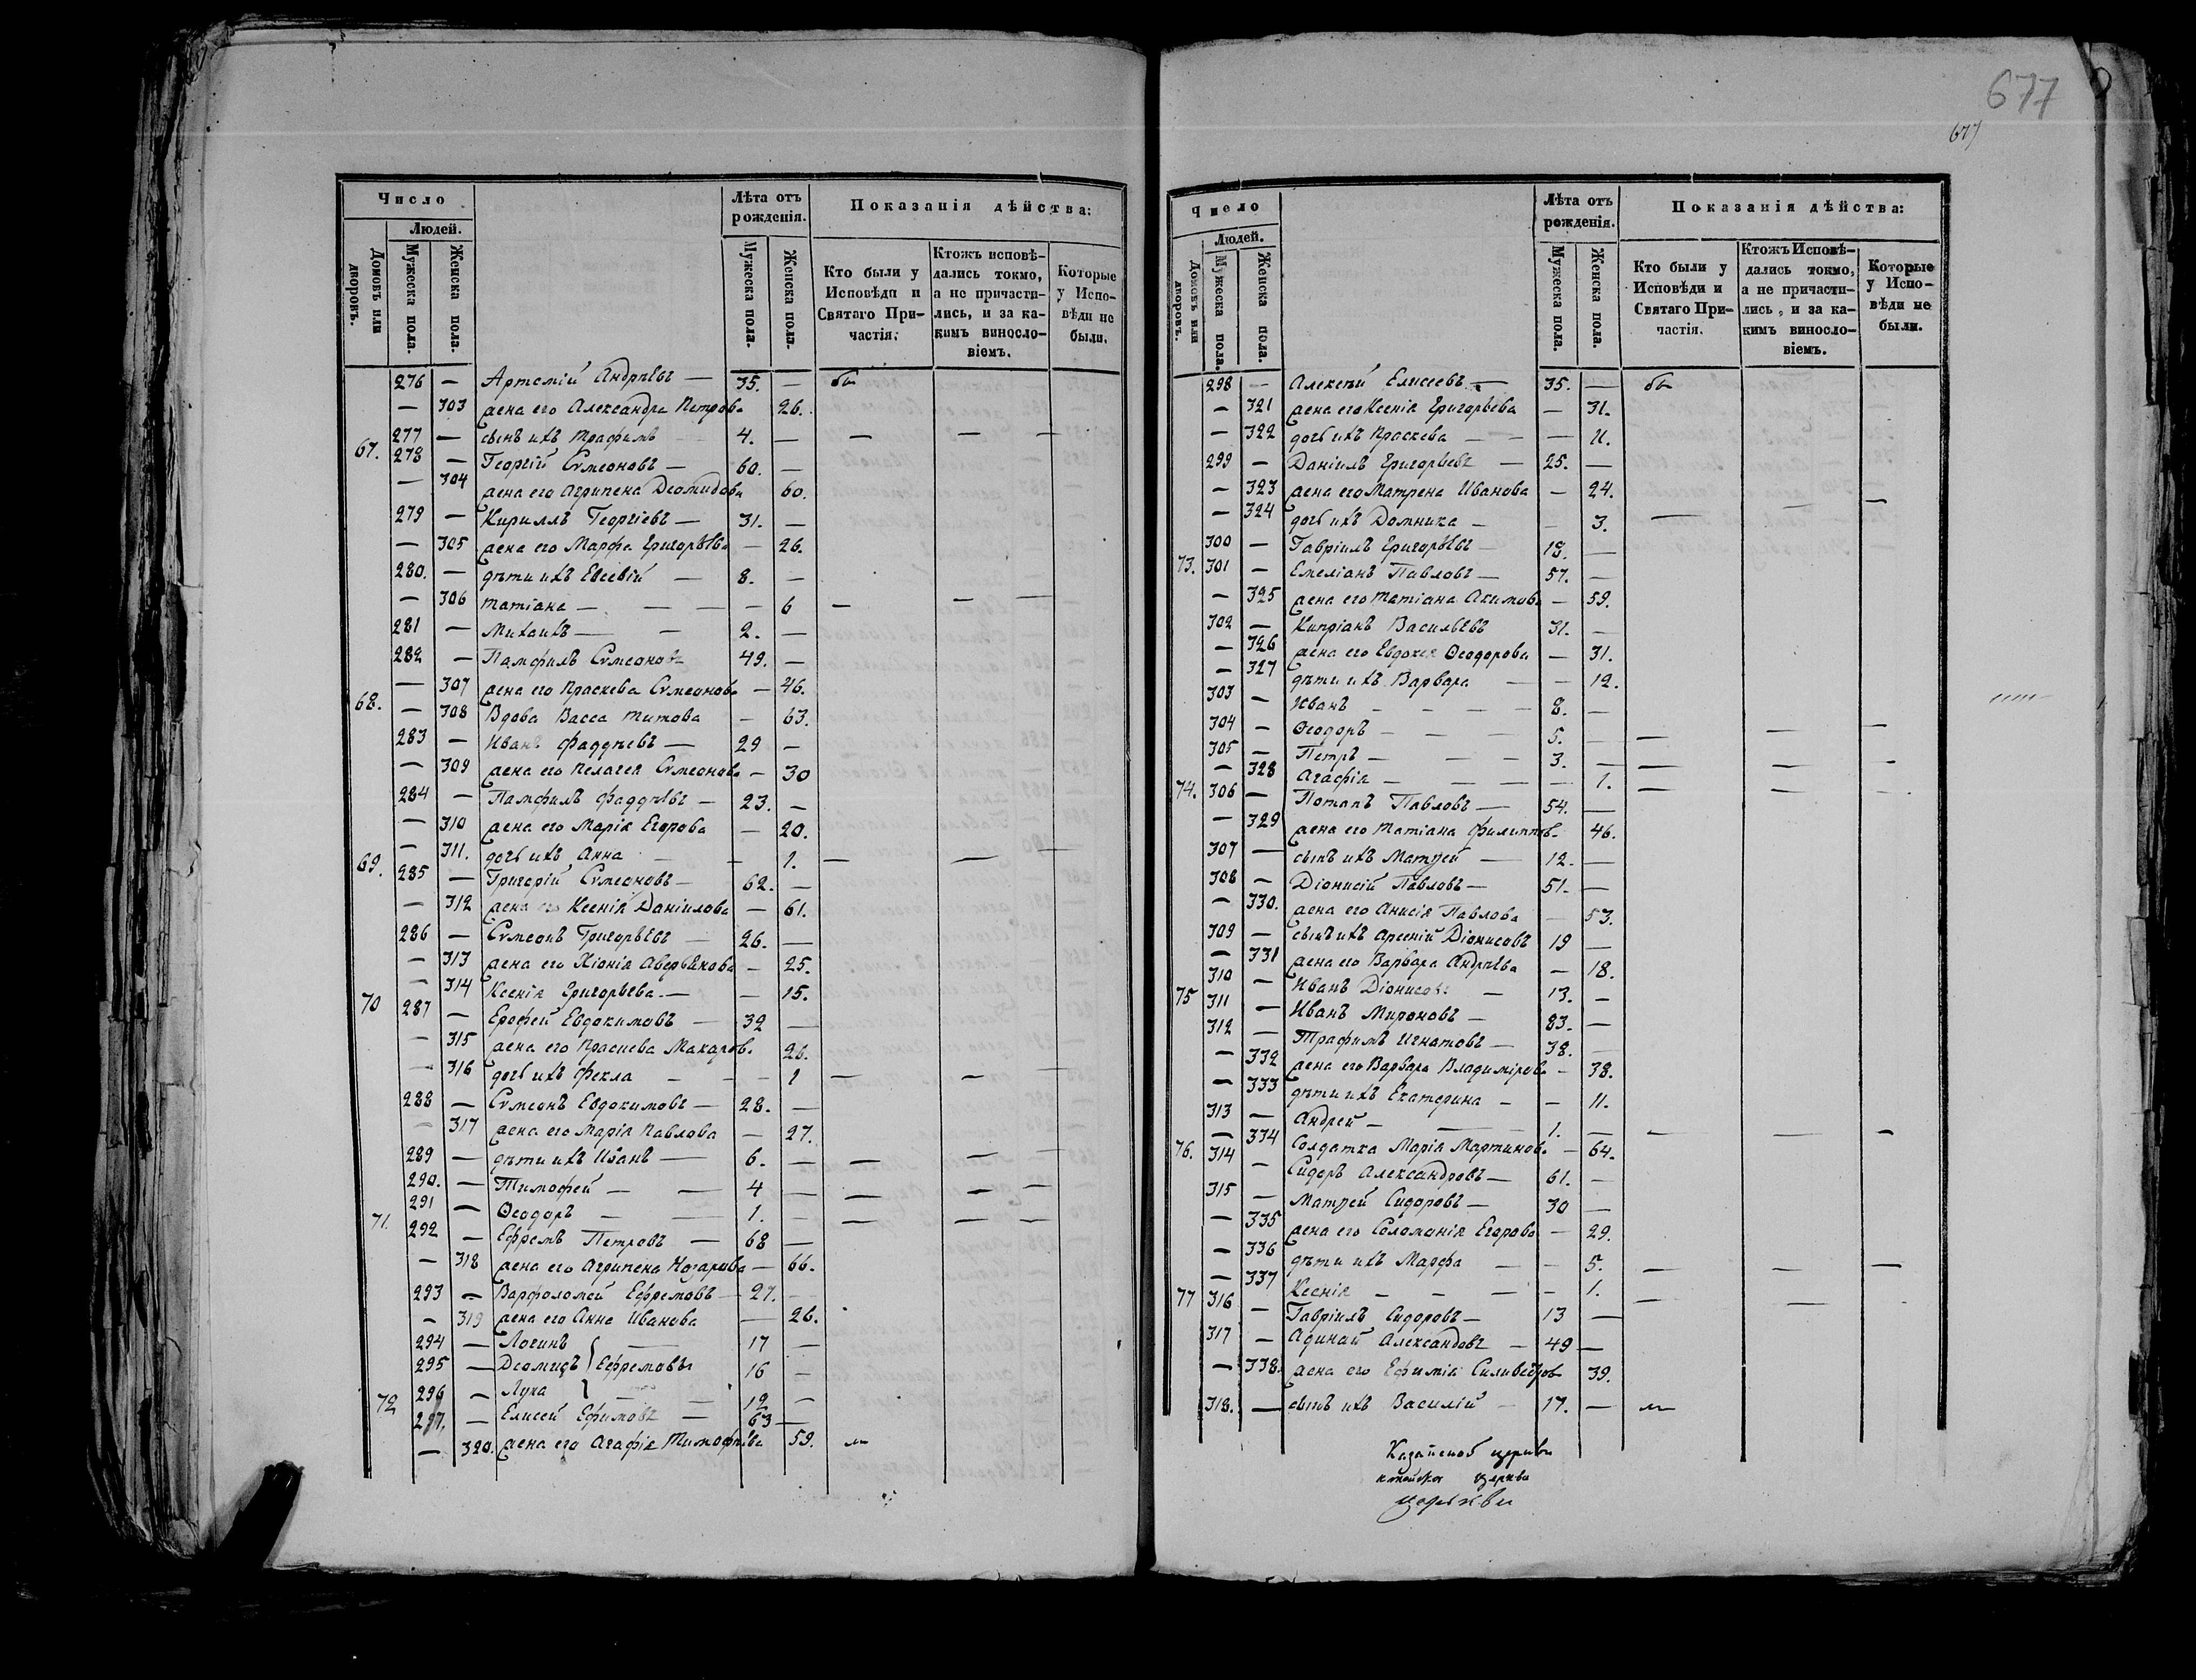 677
677
Число
Людей.
Домовъ или дворовъ.
Мужеска пола.
Женска пола.
Лѣта отъ рожденія.
Мужеска пола.
Женска пола.
Показанія дѣйства:
Кто были у Исповѣди и Святаго Причастія.
Ктожъ исповѣдались токмо, а не причастились, и за какимъ винословіемъ.
Которые у Исповѣди не были.
276 — Артемій Андрѣевъ — 35. — бы
— 303 жена его Александра Петрова 26.
277 — сынъ ихъ Трафимъ 4. — — — —
67. 278 — Георгій Сѵмеоновъ — 60. —
— 304 жена его Агрипена Деомидова 60.
279 — Кириллъ Георгіевъ — 31. —
— 305 жена его Марфа Григорьева — 26.
280. — дѣти ихъ Евсевій — 8. —
— 306 Татіана — — — — 6 — — —
281 — Михаилъ — — 2. —
282 — Памфилъ Сѵмеоновъ 49. —
— 307 жена его Праскева Сѵмеонова — 46.
68. — 308 Вдова Васса Титова — 63.
283 — Иванъ Фаддѣевъ — 29 —
— 309 жена его Пелагея Сѵмеонова — 30
284 — Памфилъ Фаддѣевъ — 23. —
— 310 жена его Марія Егорова — 20.
— 311. дочь ихъ Анна — — 1. — — —
69. 285 — Григорій Сѵмеоновъ — 62. —
— 312 жена его Ксенія Даніилова — 61.
286 — Сѵмеонъ Григорьевъ — 26. —
— 313 жена его Хіонія Аверьянова — 25.
— 314 Ксенія Григорьева — — 15.
70 287 — Ерофей Евдокимовъ — 32 —
— 315 жена его Праскева Макаров. 26.
— 316 дочь ихъ Фекла — — — 1 — — —
288 — Сѵмеонъ Евдокимовъ — 28. —
— 317 жена его Марія Павлова — 27.
289 — дѣти ихъ Иванъ — 6. — — — —
290. — Тимофей — — 4 — — — —
291 — Ѳеодоръ — — 1. — — — —
71. 292 — Ефремъ Петровъ — 68 —
— 318 жена его Агрипена Назарова — 66.
293 — Варфоломей Ефремовъ — 27. —
— 319 жена его Анна Иванова — 26.
294 — Логинъ — 17 —
295 — Деомидъ } Ефремовы 16 —
296 — Лука — 12 —
72 297. — Елисей Ефимовъ — 63 —
— 320. жена его Агафія Тимофѣева 59. ли
Число
Людей.
Домовъ или дворовъ.
Мужеска пола.
Женска пола.
Лѣта отъ рожденія.
Мужеска пола.
Женска пола.
Показанія дѣйства:
Кто были у Исповѣди и Святаго Причастія.
Ктожъ Исповѣдались токмо, а не причастились, и за какимъ винословіемъ.
Которые у Исповѣди не были.
298 — Алексѣй Елисеевъ — 35. — бы
— 321 жена его Ксенія Григорьева — 31.
— 322 дочь ихъ Праскева — — — 11.
299 — Даніилъ Григорьевъ — 25. —
— 323 жена его Матрена Иванова — 24.
— 324 дочь ихъ Домника — — 3. — — —
300 — Гавріилъ Григорьевъ — 19. —
73. 301 — Емеліанъ Павловъ — 57. —
— 325 жена его Татіана Акимова — 59.
302 — Кипріанъ Васильевъ 31. —
— 326 жена его Евдокія Ѳеодорова — 31.
— 327 дѣти ихъ Варвара — — 12.
303 — Иванъ — — — — 8. —
304 — Ѳеодоръ — — — 5. — — — —
305 — Петръ — — — 3. — — — —
— 328 Агафія — — — — — 1. — — —
74. 306 — Потапъ Павловъ — 54. —
— 329 жена его Татіана Филиппов. 46.
307 — сынъ ихъ Матѳей — 12. —
308 — Діонисій Павловъ — 51. —
— 330. жена его Анисія Павлова — 53.
309 — сынъ ихъ Арсеній Діонисовъ 19 —
— 331 жена его Варвара Андрѣева — 18.
310 — Иванъ Діонисовъ — 13. —
75 311 — Иванъ Мироновъ — 83. —
312 — Трафимъ Игнатовъ — 38. —
— 332 жена его Варвара Владимірова — 38.
— 333 дѣти ихъ Екатерина — — 11.
313 — Андрей — — 1. — — — —
— 334 Солдатка Марія Мартинов. — 64.
76. 314 — Сидоръ Александровъ — 61. —
315 — Матѳей Сидоровъ — 30 —
— 335 жена его Соломонія Егорова — 29.
— 336 дѣти ихъ Марфа — — 5. — — —
— 337 Ксенія — — — — 1. — —
77 316 — Гавріилъ Сидоровъ — 13 —
317 — Адинай Александовъ — 49 —
— 338. жена его Ефимія Силивестров 39.
318. — сынъ ихъ Василій — 17. — ли
церкви
церкви